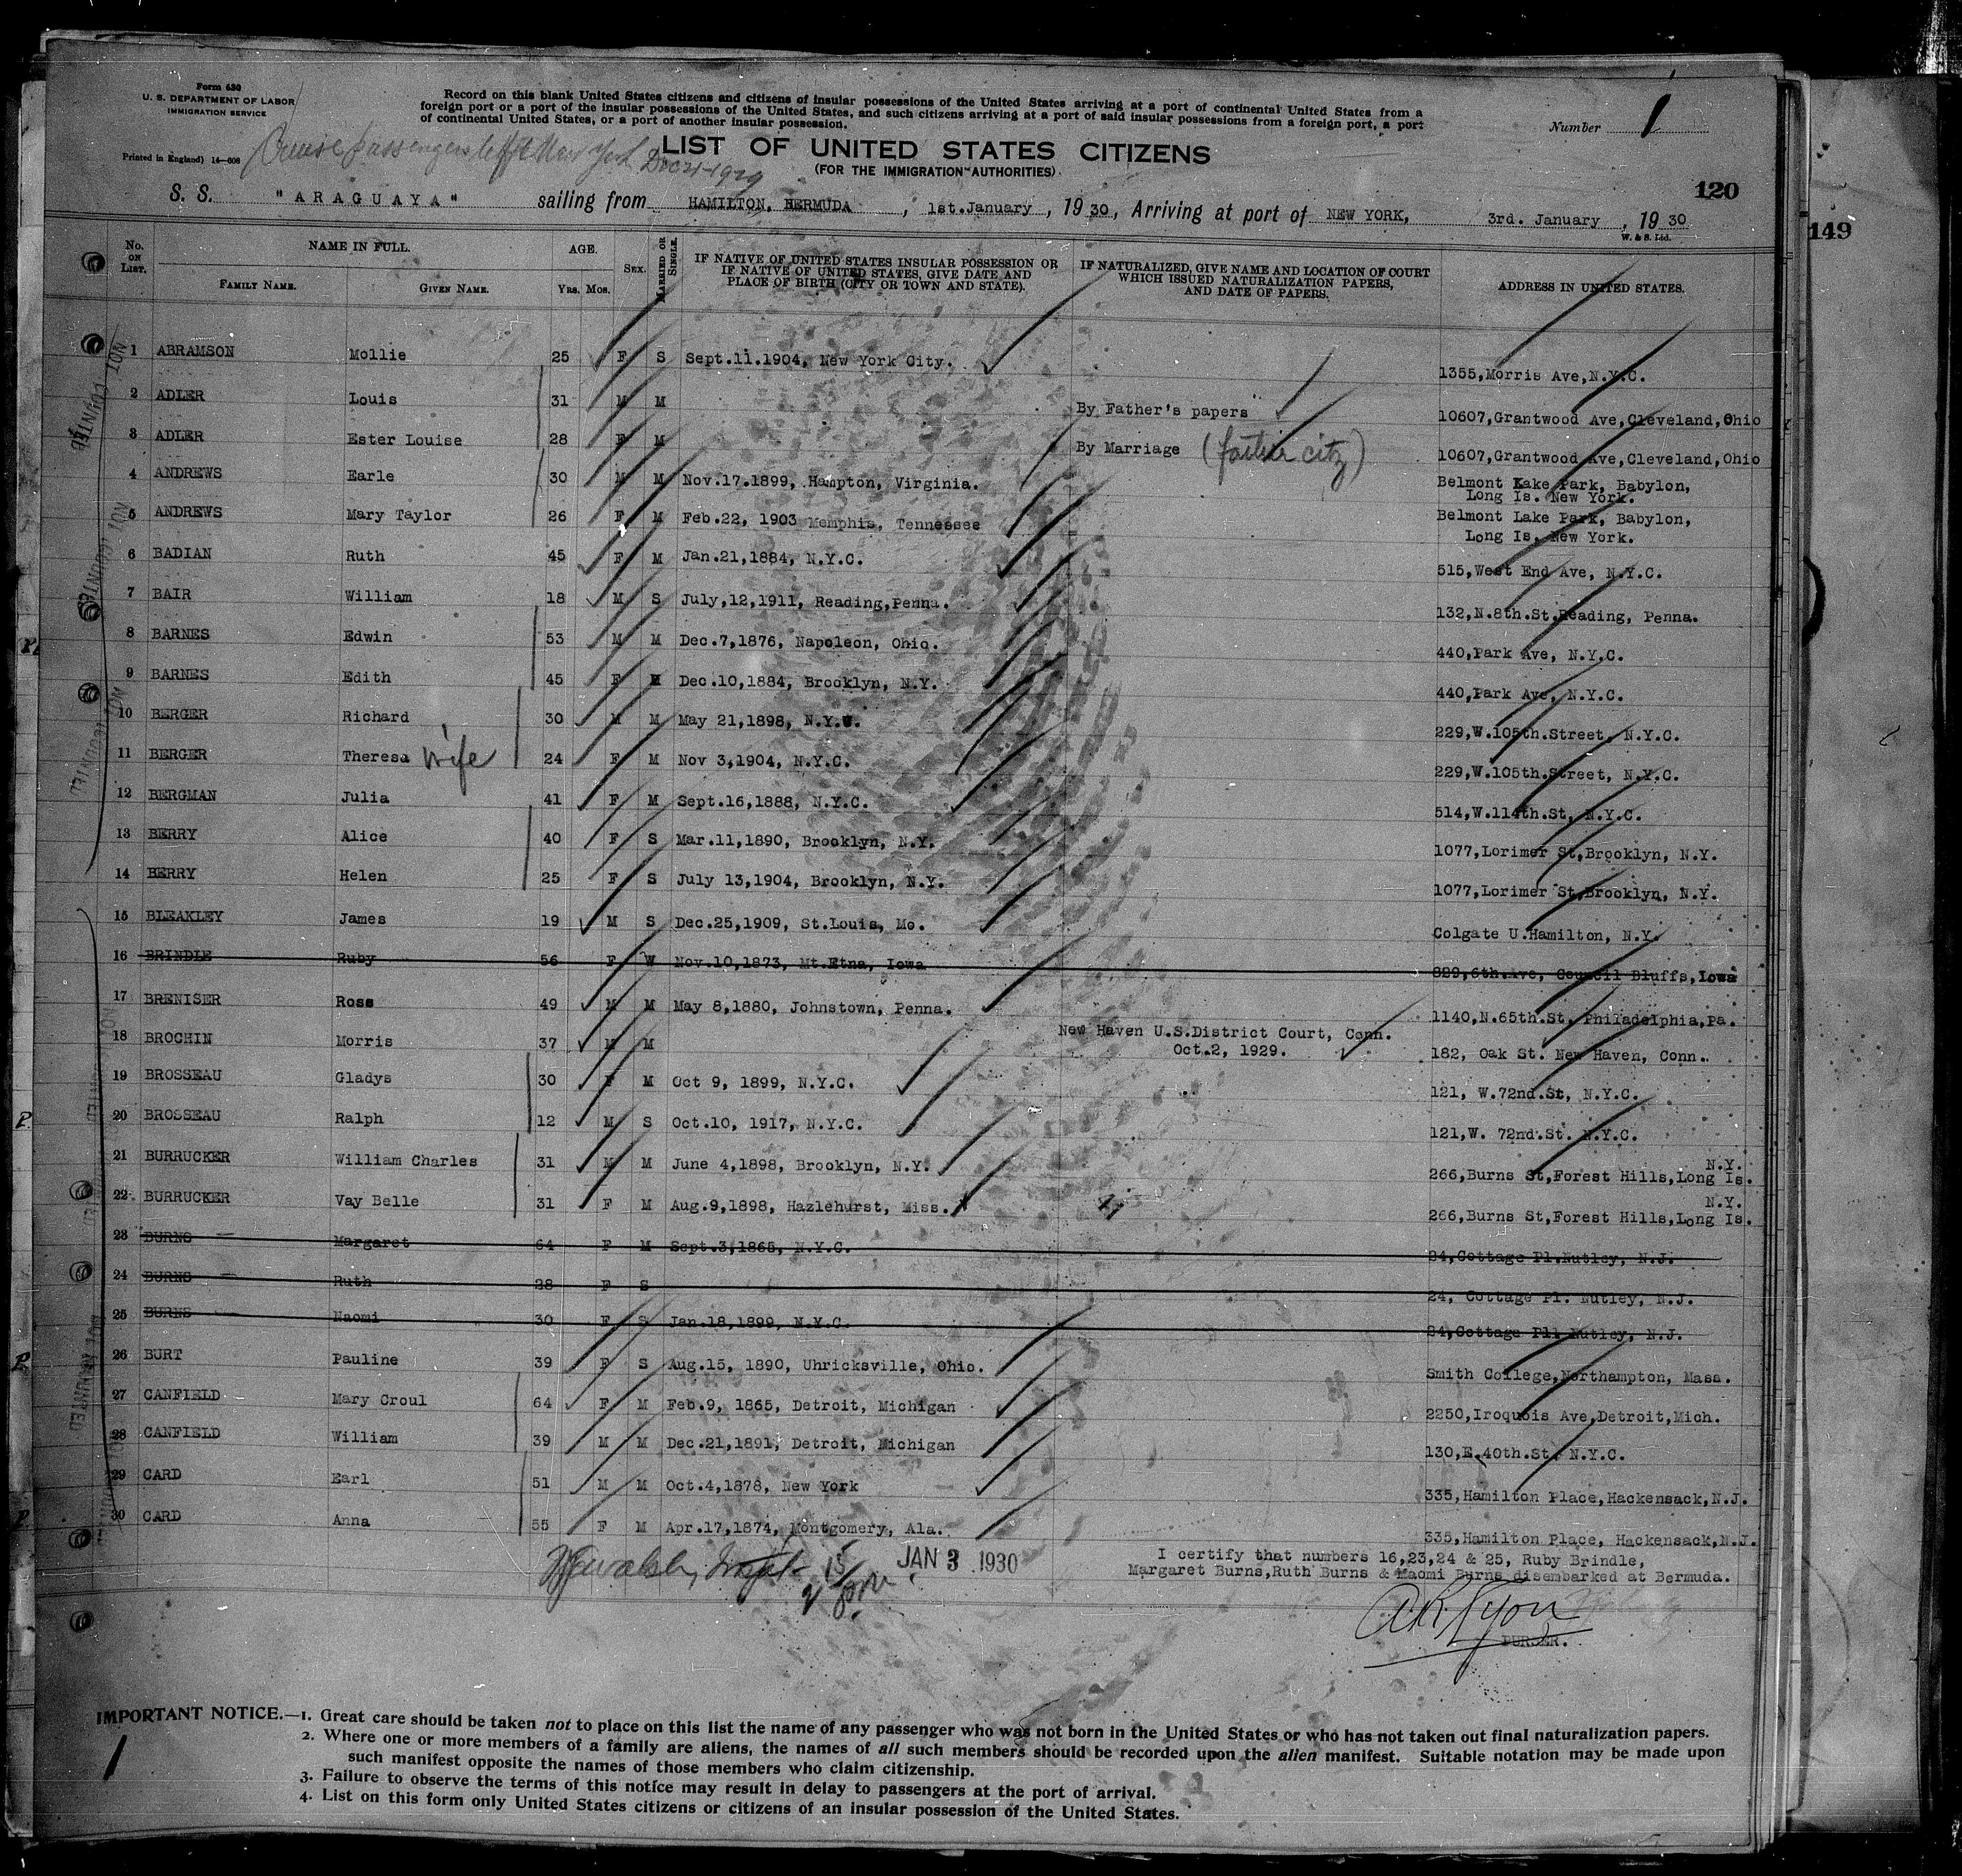 Form 630
U. S. DEPARTMENT OF LABOR
IMMIGRATION SERVICE
Printed in England) 14—608
Record on this blank United States citizens and citizens of insular possessions of the United States arriving at a port of continental United States from a
foreign port or a port of the insular possessions of the United States, and such citizens arriving at a port of said insular possessions from a foreign port, a port
of continental United States, or a port of another insular possession.
Number 1
Cruise passengers left New York Dec 21-1929
LIST OF UNITED STATES CITIZENS
(FOR THE IMMIGRATION AUTHORITIES)
120
149
S. S. "ARAGUAYA" sailing from HAMILTON, BERMUDA, 1st.January, 1930, Arriving at port of NEW YORK, 3rd. January, 1930
W. & S. Ltd.
No. ON LIST. NAME IN FULL. AGE. SEX. MARRIED OR SINGLE. IF NATIVE OF UNITED STATES INSULAR POSSESSION OR IF NATIVE OF UNITED STATES, GIVE DATE AND PLACE OF BIRTH (CITY OR TOWN AND STATE). IF NATURALIZED, GIVE NAME AND LOCATION OF COURT WHICH ISSUED NATURALIZATION PAPERS, AND DATE OF PAPERS. ADDRESS IN UNITED STATES.
FAMILY NAME. GIVEN NAME. Yrs. Mos.
1 ABRAMSON Mollie 25 F S Sept.11.1904, New York City. 1355,Morris Ave,N.Y.C.
2 ADLER Louis 31 M M By Father's papers 10607,Grantwood Ave,Cleveland,Ohio
3 ADLER Ester Louise 28 F M By Marriage 10607,Grantwood Ave,Cleveland,Ohio
4 ANDREWS Earle 30 M M Nov.17.1899, Hampton, Virginia. Belmont Lake Park, Babylon,
Long Is. New York.
5 ANDREWS Mary Taylor 26 F M Feb.22, 1903 Memphis, Tennessee Belmont Lake Park, Babylon,
Long Is. New York.
6 BADIAN Ruth 45 F M Jan.21,1884, N.Y.C. 515,West End Ave, N.Y.C.
7 BAIR William 18 M S July,12,1911, Reading,Penna. 132,N.8th.St.Reading, Penna.
8 BARNES Edwin 53 M M Dec.7,1876, Napoleon, Ohio. 440,Park Ave, N.Y.C.
9 BARNES Edith 45 F M Dec.10,1884, Brooklyn, N.Y. 440,Park Ave, N.Y.C.
10 BERGER Richard 30 M M May 21,1898, N.Y.C. 229,W.105th.Street, N.Y.C.
11 BERGER Theresa wife 24 F M Nov 3,1904, N.Y.C. 229,W.105th.Street, N.Y.C.
12 BERGMAN Julia 41 F M Sept.16,1888, N.Y.C. 514,W.114th.St, N.Y.C.
13 BERRY Alice 40 F S Mar.11,1890, Brooklyn, N.Y. 1077,Lorimer St,Brooklyn, N.Y.
14 BERRY Helen 25 F S July 13,1904, Brooklyn, N.Y. 1077,Lorimer St,Brooklyn, N.Y.
15 BLEAKLEY James 19 M S Dec.25,1909, St.Louis, Mo. Colgate U.Hamilton, N.Y.
16 BRINDLE Ruby 56 F W Nov.10,1873, Mt.Etna, Iowa 829,6th.Ave, Council Bluffs,Iowa
17 BRENISER Ross 49 M M May 8,1880, Johnstown, Penna. 1140,N.65th.St. Philadelphia,Pa.
18 BROCHIN Morris 37 M M New Haven U.S.District Court, Conn.
Oct.2, 1929. 182, Oak St. New Haven, Conn.
19 BROSSEAU Gladys 30 F M Oct 9, 1899, N.Y.C. 121, W.72nd.St, N.Y.C.
20 BROSSEAU Ralph 12 M S Oct.10, 1917, N.Y.C. 121,W. 72nd.St. N.Y.C.
21 BURRUCKER William Charles 31 M M June 4,1898, Brooklyn, N.Y. 266,Burns St,Forest Hills,Long Is. N.Y.
22 BURRUCKER Vay Belle 31 F M Aug.9,1898, Hazlehurst, Miss. 266,Burns St,Forest Hills,Long Is. N.Y.
23 BURNS Margaret 64 F M Sept.3,1865, N.Y.C. 24,Cottage Pl.Nutley, N.J.
24 BURNS Ruth 28 F S 24, Cottage Pl. Nutley, N.J.
25 BURNS Naomi 30 F S Jan.18,1899, N.Y.C. 24,Cottage Pll Nutley, N.J.
26 BURT Pauline 39 F S Aug.15, 1890, Uhricksville, Ohio. Smith College,Northampton, Mass.
27 CANFIELD Mary Croul 64 F M Feb.9, 1865, Detroit, Michigan 2250,Iroquois Ave,Detroit,Mich.
28 CANFIELD William 39 M M Dec.21,1891, Detroit, Michigan 130,E.40th.St, N.Y.C.
29 CARD Earl 51 M M Oct.4,1878, New York 335,Hamilton Place,Hackensack,N.J.
30 CARD Anna 55 F M Apr.17,1874, Montgomery, Ala. 335,Hamilton Place, Hackensack,N.J.
JAN 3 1930
I certify that numbers 16,23,24 & 25, Ruby Brindle,
Margaret Burns,Ruth Burns & Naomi Burns disembarked at Bermuda.
PURSER.
IMPORTANT NOTICE.—1. Great care should be taken not to place on this list the name of any passenger who was not born in the United States or who has not taken out final naturalization papers.
2. Where one or more members of a family are aliens, the names of all such members should be recorded upon the alien manifest. Suitable notation may be made upon
such manifest opposite the names of those members who claim citizenship.
3. Failure to observe the terms of this notice may result in delay to passengers at the port of arrival.
4. List on this form only United States citizens or citizens of an insular possession of the United States.
1